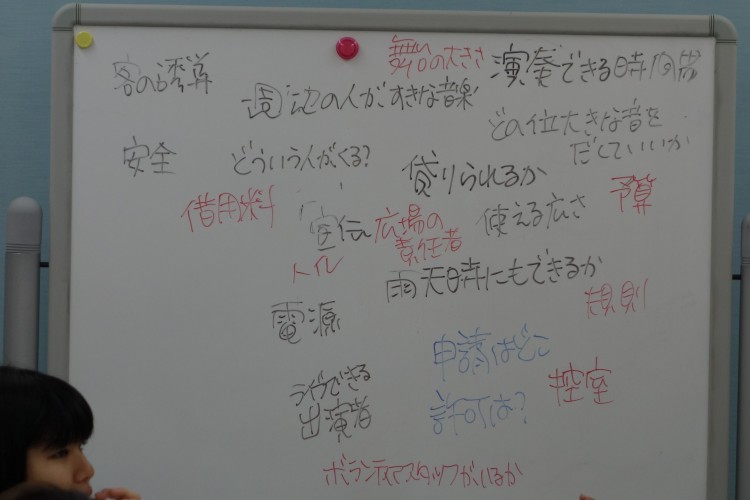 舞台の大きさ
客の誘導
演奏できる時間帯
周辺の人がすきな音楽
どの位大きな音を
だしていいか
安全
どういう人がくる?
貸りられるか
借用料
予算
宣伝
広場の
責任者
使える広さ
トイレ
雨天時にもできるか
規則
電源
申請はどこ
ライヴできる
出演者
許可は?
控室
ボランティアスタッフがいるか